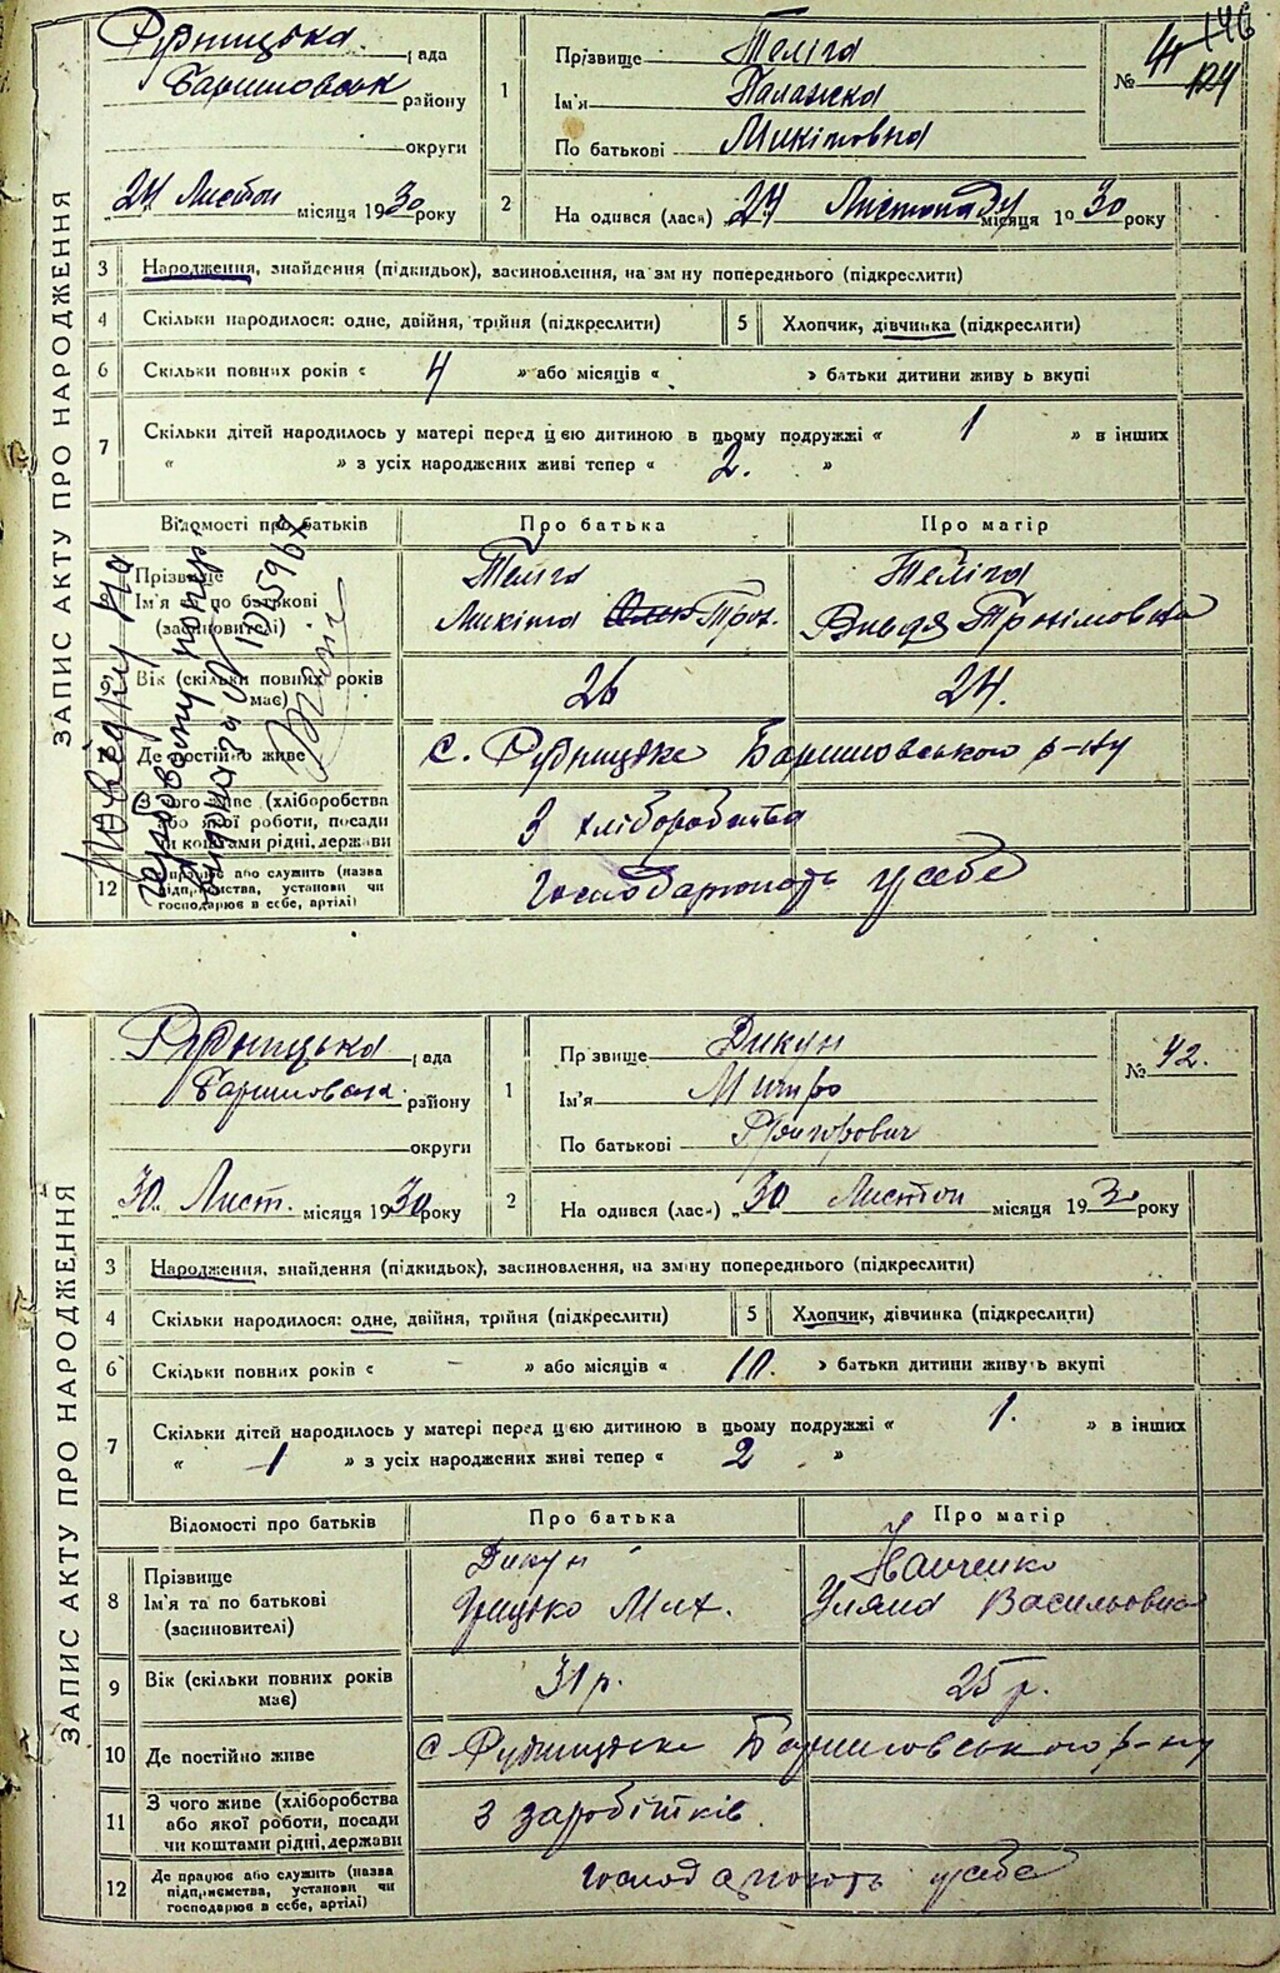 146
Рудницька рада
Баришовськ району
округи
"24" Листоп місяця 1930 року
1
Прізвище Теліга
Ім'я Палажка
По батькові Микітовна
№ 41
124
2
Народився (лася) 24 Листопаду місяця 1930 року
ЗАПИС АКТУ ПРО НАРОДЖЕННЯ
3 Народження, знайдення (підкидьок), засиновлення, на зміну попереднього (підкреслити)
4 Скільки народилося: одне, двійня, трійня (підкреслити)
5 Хлопчик, дівчинка (підкреслити)
6 Скільки повних років « 4 » або місяців « » батьки дитини живуть вкупі
7 Скільки дітей народилось у матері перед цією дитиною в цьому подружжі « 1 » в інших
« » з усіх народжених живі тепер « 2. »
Відомості про батьків
Про батька
Про матір
8 Прізвище
Ім'я та по батькові
(засиновителі)
Теліга
Микіта Трох.
Теліга
Трохімовна
9 Вік (скільки повних років має)
26
24.
10 Де постійно живе
с. Рудницьке Баришовського р-ну
11 З чого живе (хліборобства
або якої роботи, посади
чи коштами рідні, держави
З хліборобства
12 Де працює або служить (назва
підприємства, установи чи
господарює в себе, артілі)
Господарюють у себе
Рудницька рада
Баришовськ. району
округи
"30" Лист. місяця 1930 року
1
Прізвище Дикун
Ім'я Митро
По батькові Григорович
№ 42.
2
Народився (лася) "30 Листоп місяця 1930 року
ЗАПИС АКТУ ПРО НАРОДЖЕННЯ
3 Народження, знайдення (підкидьок), засиновлення, на зміну попереднього (підкреслити)
4 Скільки народилося: одне, двійня, трійня (підкреслити)
5 Хлопчик, дівчинка (підкреслити)
6 Скільки повних років « – » або місяців « 10. » батьки дитини живуть вкупі
7 Скільки дітей народилось у матері перед цією дитиною в цьому подружжі « 1. » в інших
« 1 » з усіх народжених живі тепер « 2 »
Відомості про батьків
Про батька
Про матір
8 Прізвище
Ім'я та по батькові
(засиновителі)
Дикун
Грицько Мих.
Іванченко
Уляна Васильовна
9 Вік (скільки повних років має)
31 р.
25 р.
10 Де постійно живе
с. Рудницьке Баришовського р-ну
11 З чого живе (хліборобства
або якої роботи, посади
чи коштами рідні, держави
З заробітків.
12 Де працює або служить (назва
підприємства, установи чи
господарює в себе, артілі)
господарюють у себе